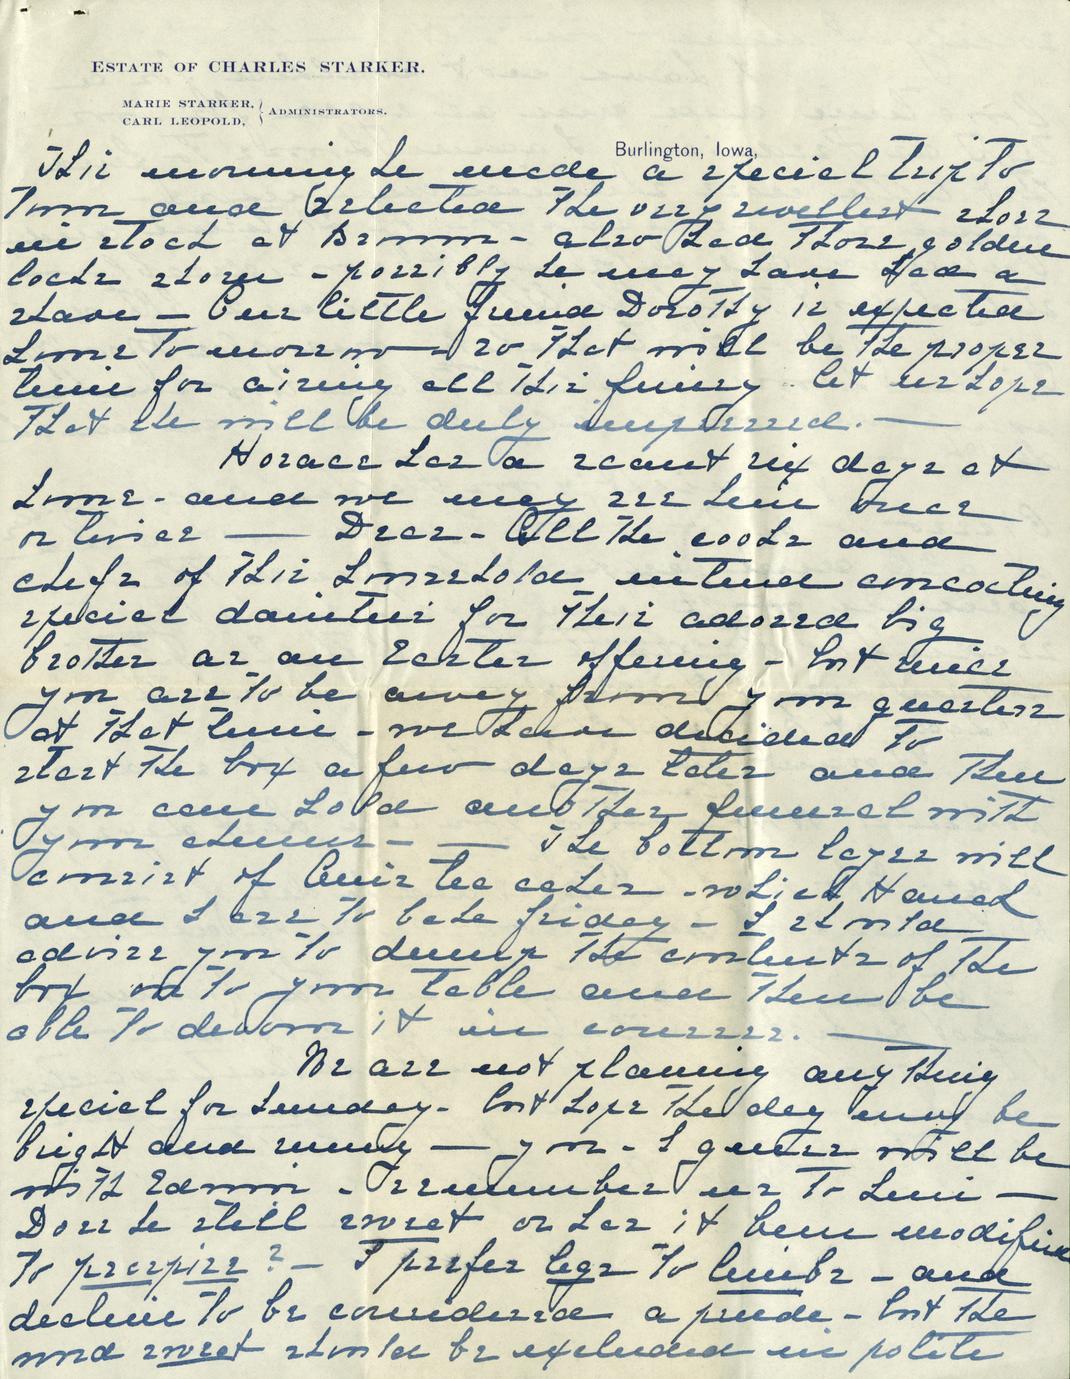 ESTATE OF CHARLES STARKER.
MARIE STARKER,
CARL LEOPOLD,
ADMINISTRATORS.
Burlington, Iowa,
This morning he made a special trip to
Town and selected the very swellest shoes
in stock at Browns - also had those golden
locks shorn - possibly he may have had a
shave — Our little friend Dorothy is expected
home tomorrow - so that will be the proper
time for airing all this finery. let us hope
that she will be duly impressed. —
Horace has a scant six days at
home - and we may see him once
or twice — Dear - All the cooks and
chefs of this household intend concocting
special dainties for their adored big
brother as an Easter offering - but since
you are to be away from your quarters
at that time - we have decided to
start the box a few days later and then
you can hold another funeral with
your chums - — The bottom layer will
consist of tea cakes - which
and I are to bake friday - I should
advise you to dump the contents of the
box on to your table and then be
able to devour it in courses. —
We are not planning any thing
special for Sunday - but hope the day may be
bright and sunny — you - I guess will be
with Edwin - remember us to him —
Does he still sweat or has it been modified
to perspire? - I prefer legs to limbs - and
decline to be considered a prude - but the
word sweat should be excluded in polite